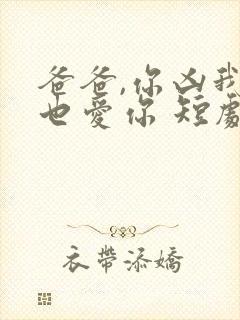 爸爸,你凶我
也爱你 短剧
衣带添娇